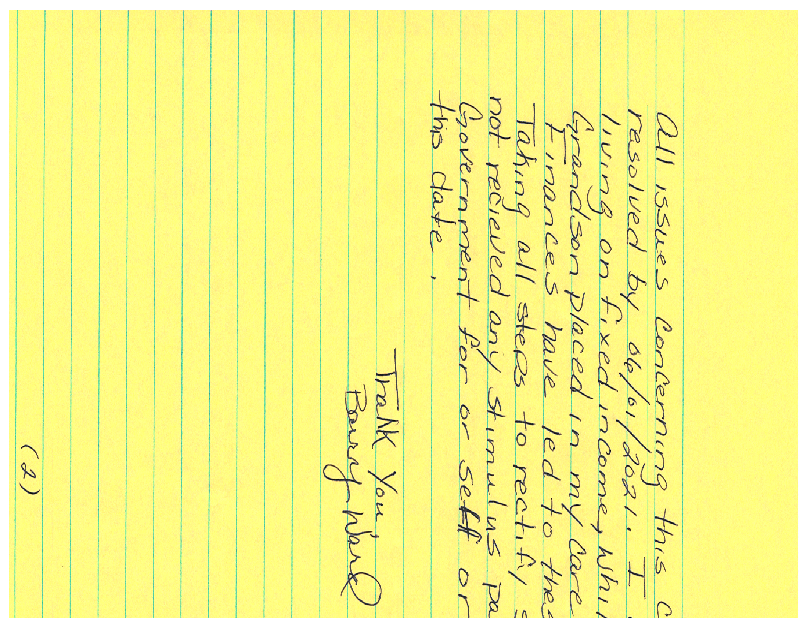 All issues concerning this C
resolved by 06/01/2021. I
living on fixed income, whi
Grandson placed in my care
Finances have led to thes
Taking all steps to rectify, s
not recieved any stimulus pa
Government for or self or
this date.
Thank You,
Ward
(2)